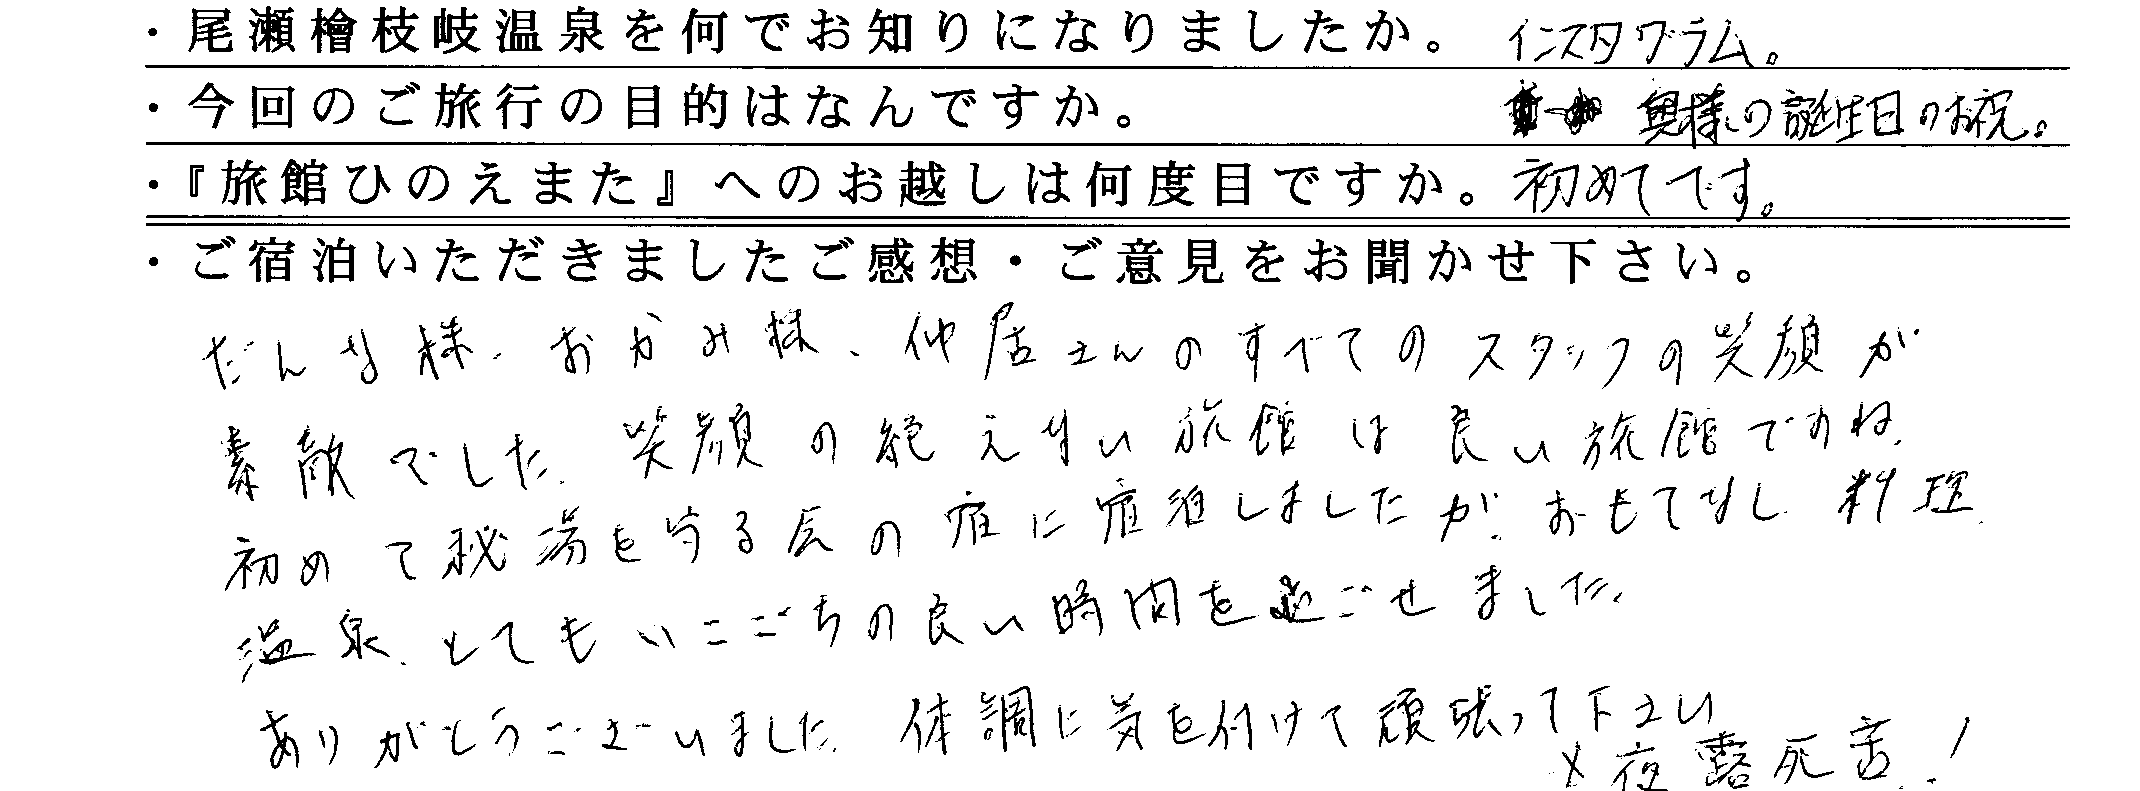 ・尾瀬檜枝岐温泉を何でお知りになりましたか。 インスタグラム。
・今回のご旅行の目的はなんですか。 奥様の誕生日のお祝。
・『旅館ひのえまた』へのお越しは何度目ですか。初めてです。
・ご宿泊いただきましたご感想・ご意見をお聞かせ下さい。
だんな様、おかみ様、仲居さんのすべてのスタッフの笑顔が
素敵でした。笑顔の絶えない旅館は良い旅館ですね。
初めて秘湯を守る会の宿に宿泊しましたが、おもてなし、料理、
温泉、とてもいごこちの良い時間を過ごせました。
ありがとうございました。体調に気を付けて頑張って下さい
夜露死苦!